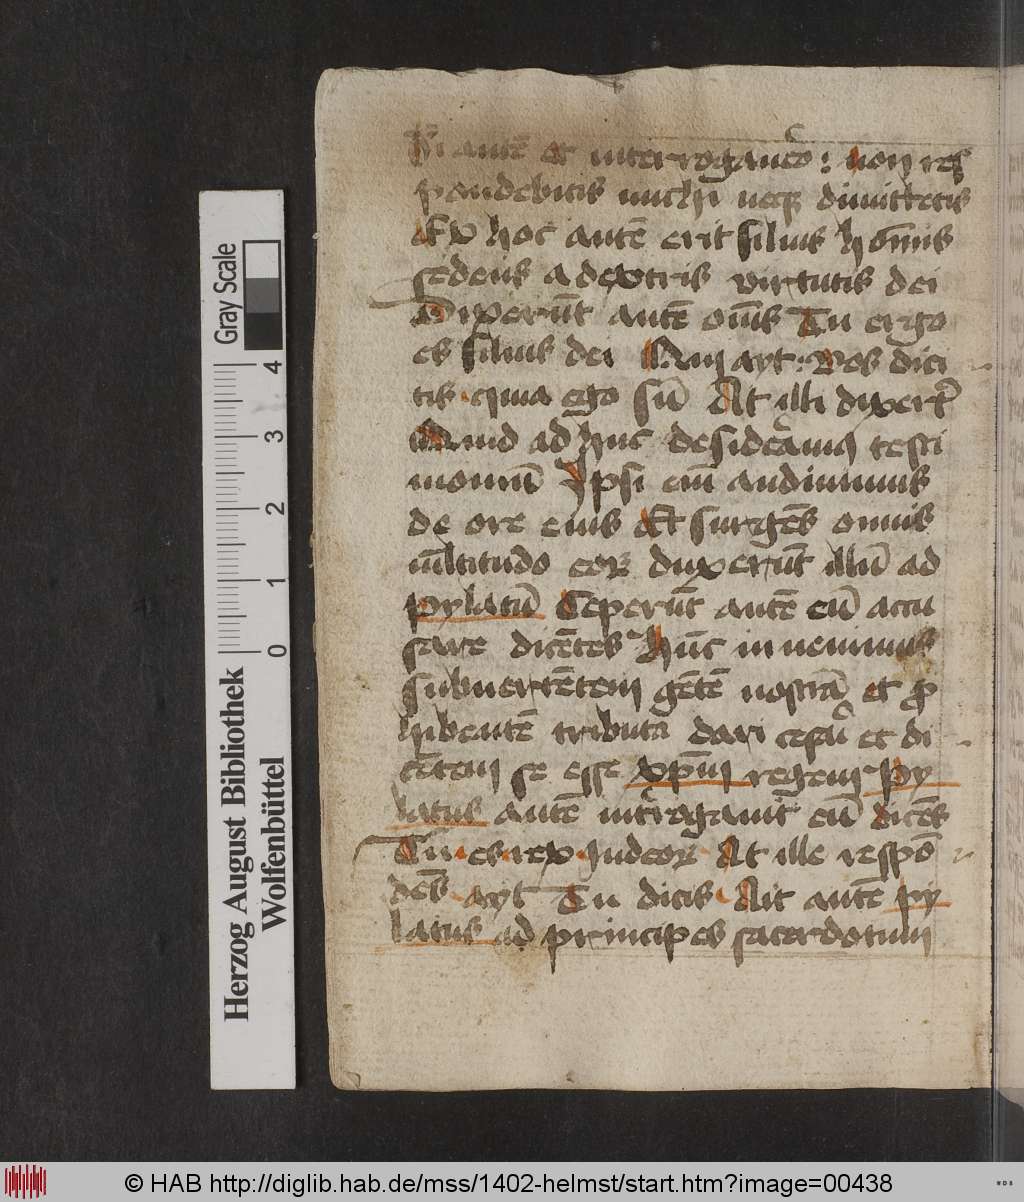 Si autē et interrogauero : non res
pondebitis michi neqꝫ dimittetis
Ex hoc autē erit filius hōīnis
sedens a dextris virtutis dei
Dixerūt autē om̄s Tu ergo
es filius dei Qui ayt : Vos dici
tis quia ego sū At illi dixerūt
Quid adhuc desideramꝰ testi
moniū Ipsi eīm audiuimus
de ore eius Et surgēs omnis
m̄ltitudo eoꝝ duxerūt illū ad
Pylatū Ceperūt autē eū accu
sare dicētes Hūc inuenimus
subuertētem gētē nostrā et ꝓ
hibentē tributa dari cesari et di
cētem se esse xp̄m regem Py
latus autē interrogauit eū dicēs
Tu es rex Iudeoꝝ At ille respō
dēs ayt Tu dicis Ait autē py
latus ad principes sacerdotum
Gray Scale
4
3
2
1
0
Herzog August Bibliothek
Wolfenbüttel
© HAB http://diglib.hab.de/mss/1402-helmst/start.htm?image=00438